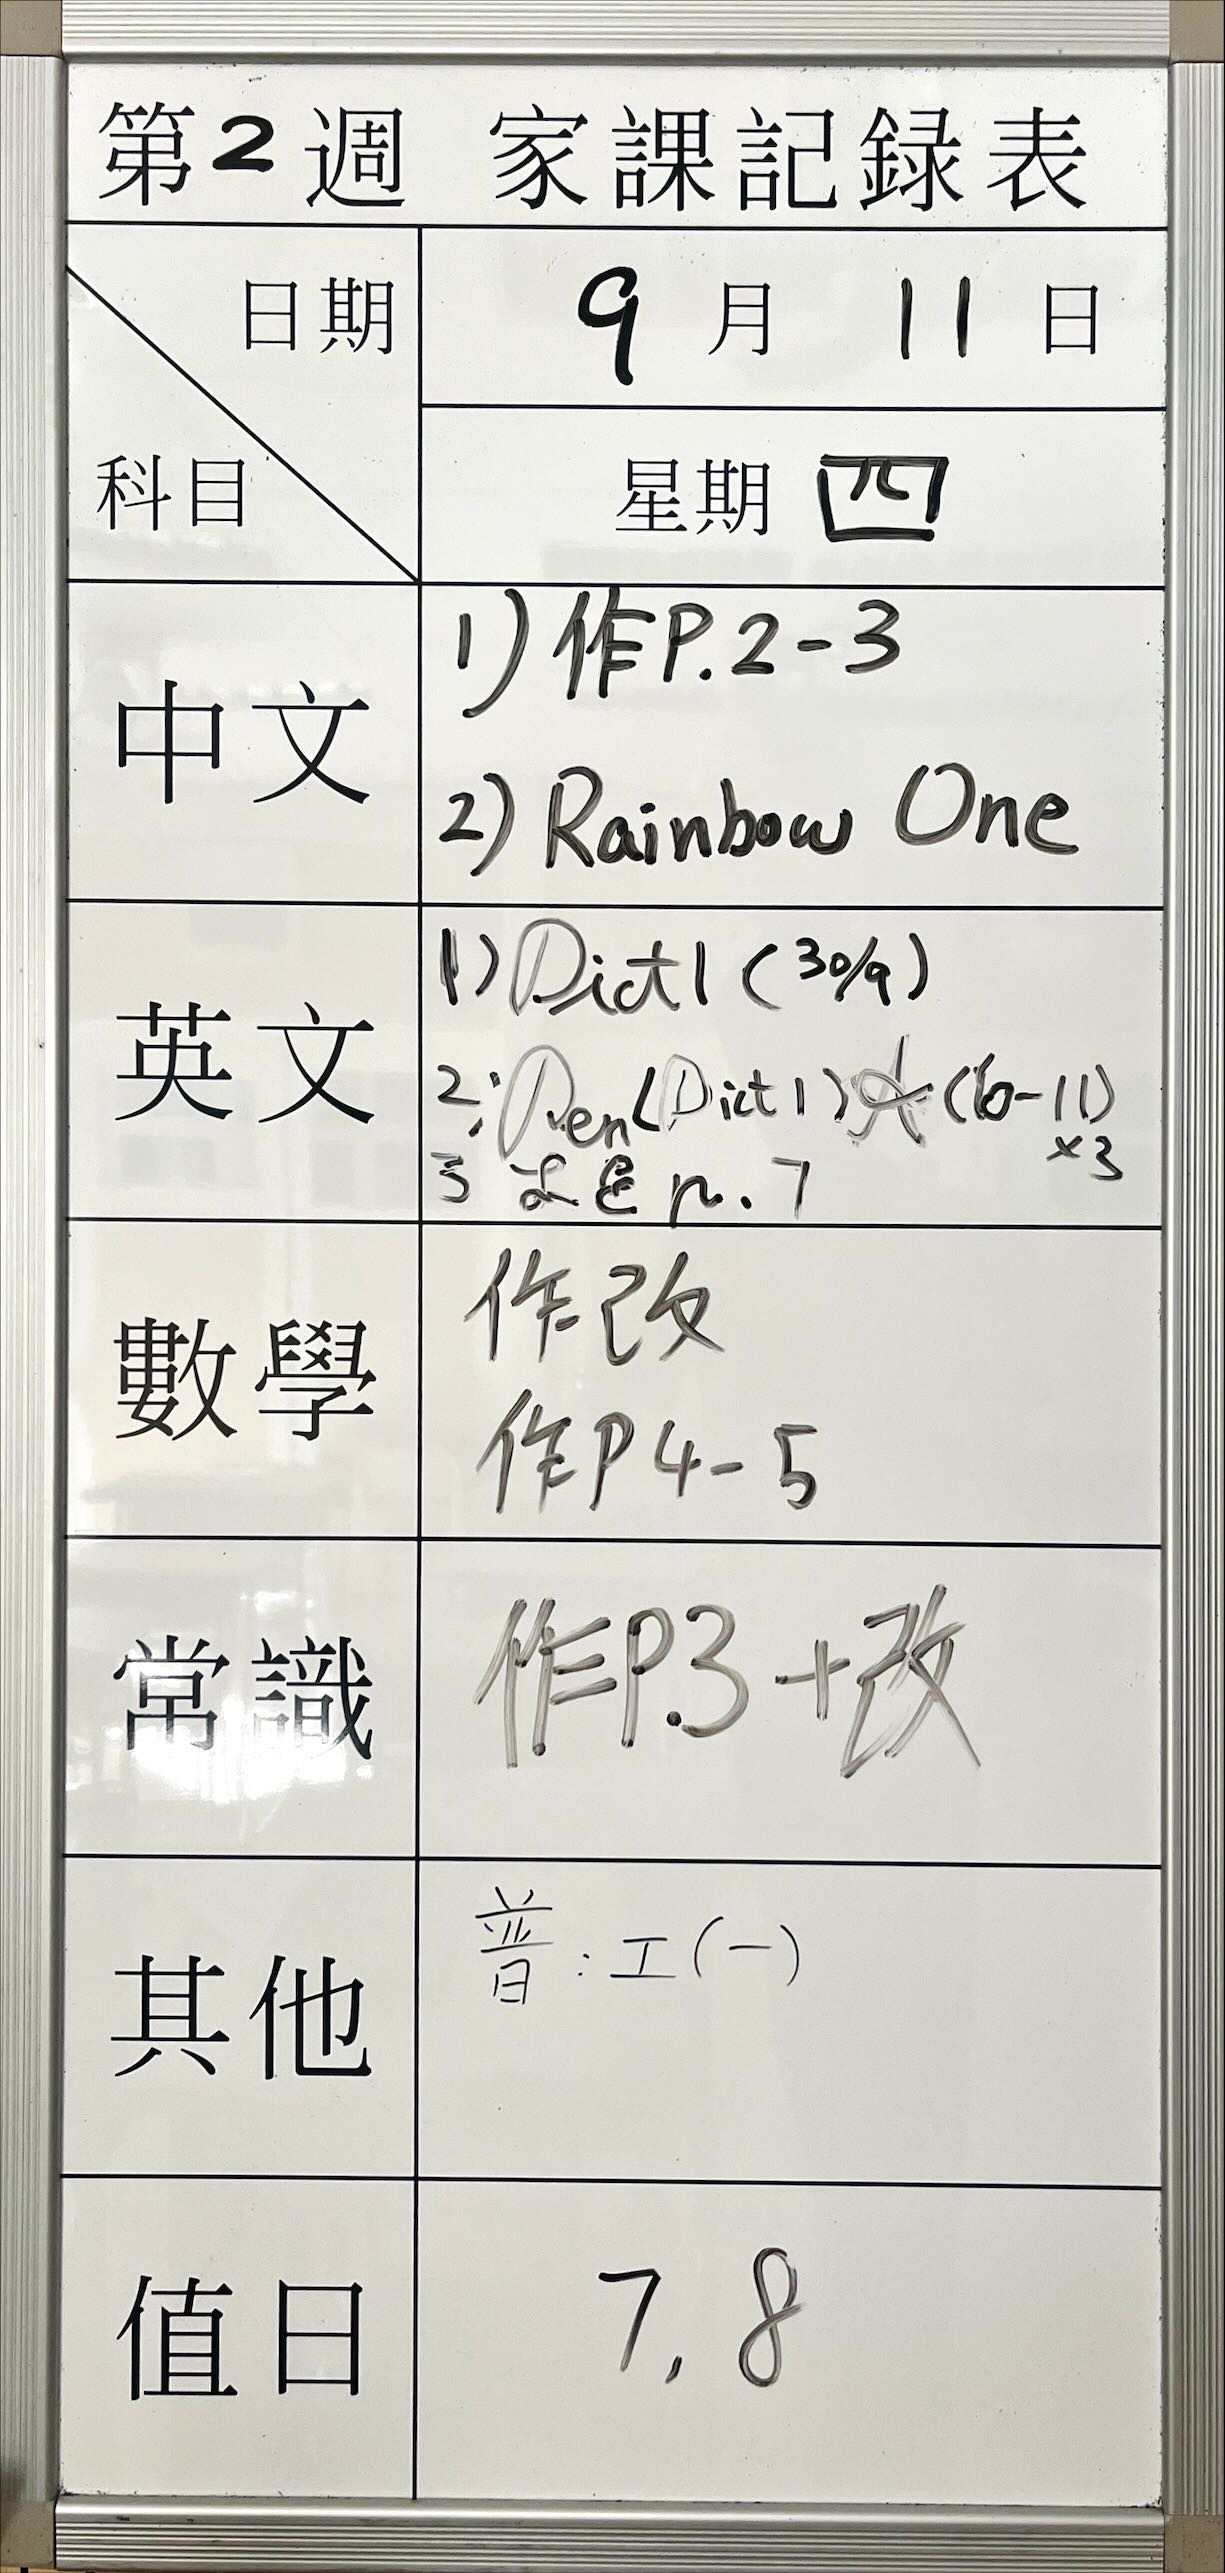 第2週 家課記録表
日期
9月11日
科目
星期四
中文
1) 作P.2-3
2) Rainbow One
英文
1) Dict 1 (30/9)
2) Pen (Dict 1) A (6-11)
×3
3 p.7
數學
作改
作P4-5
常識
作P.3+改
其他
普:工(一)
值日
7, 8